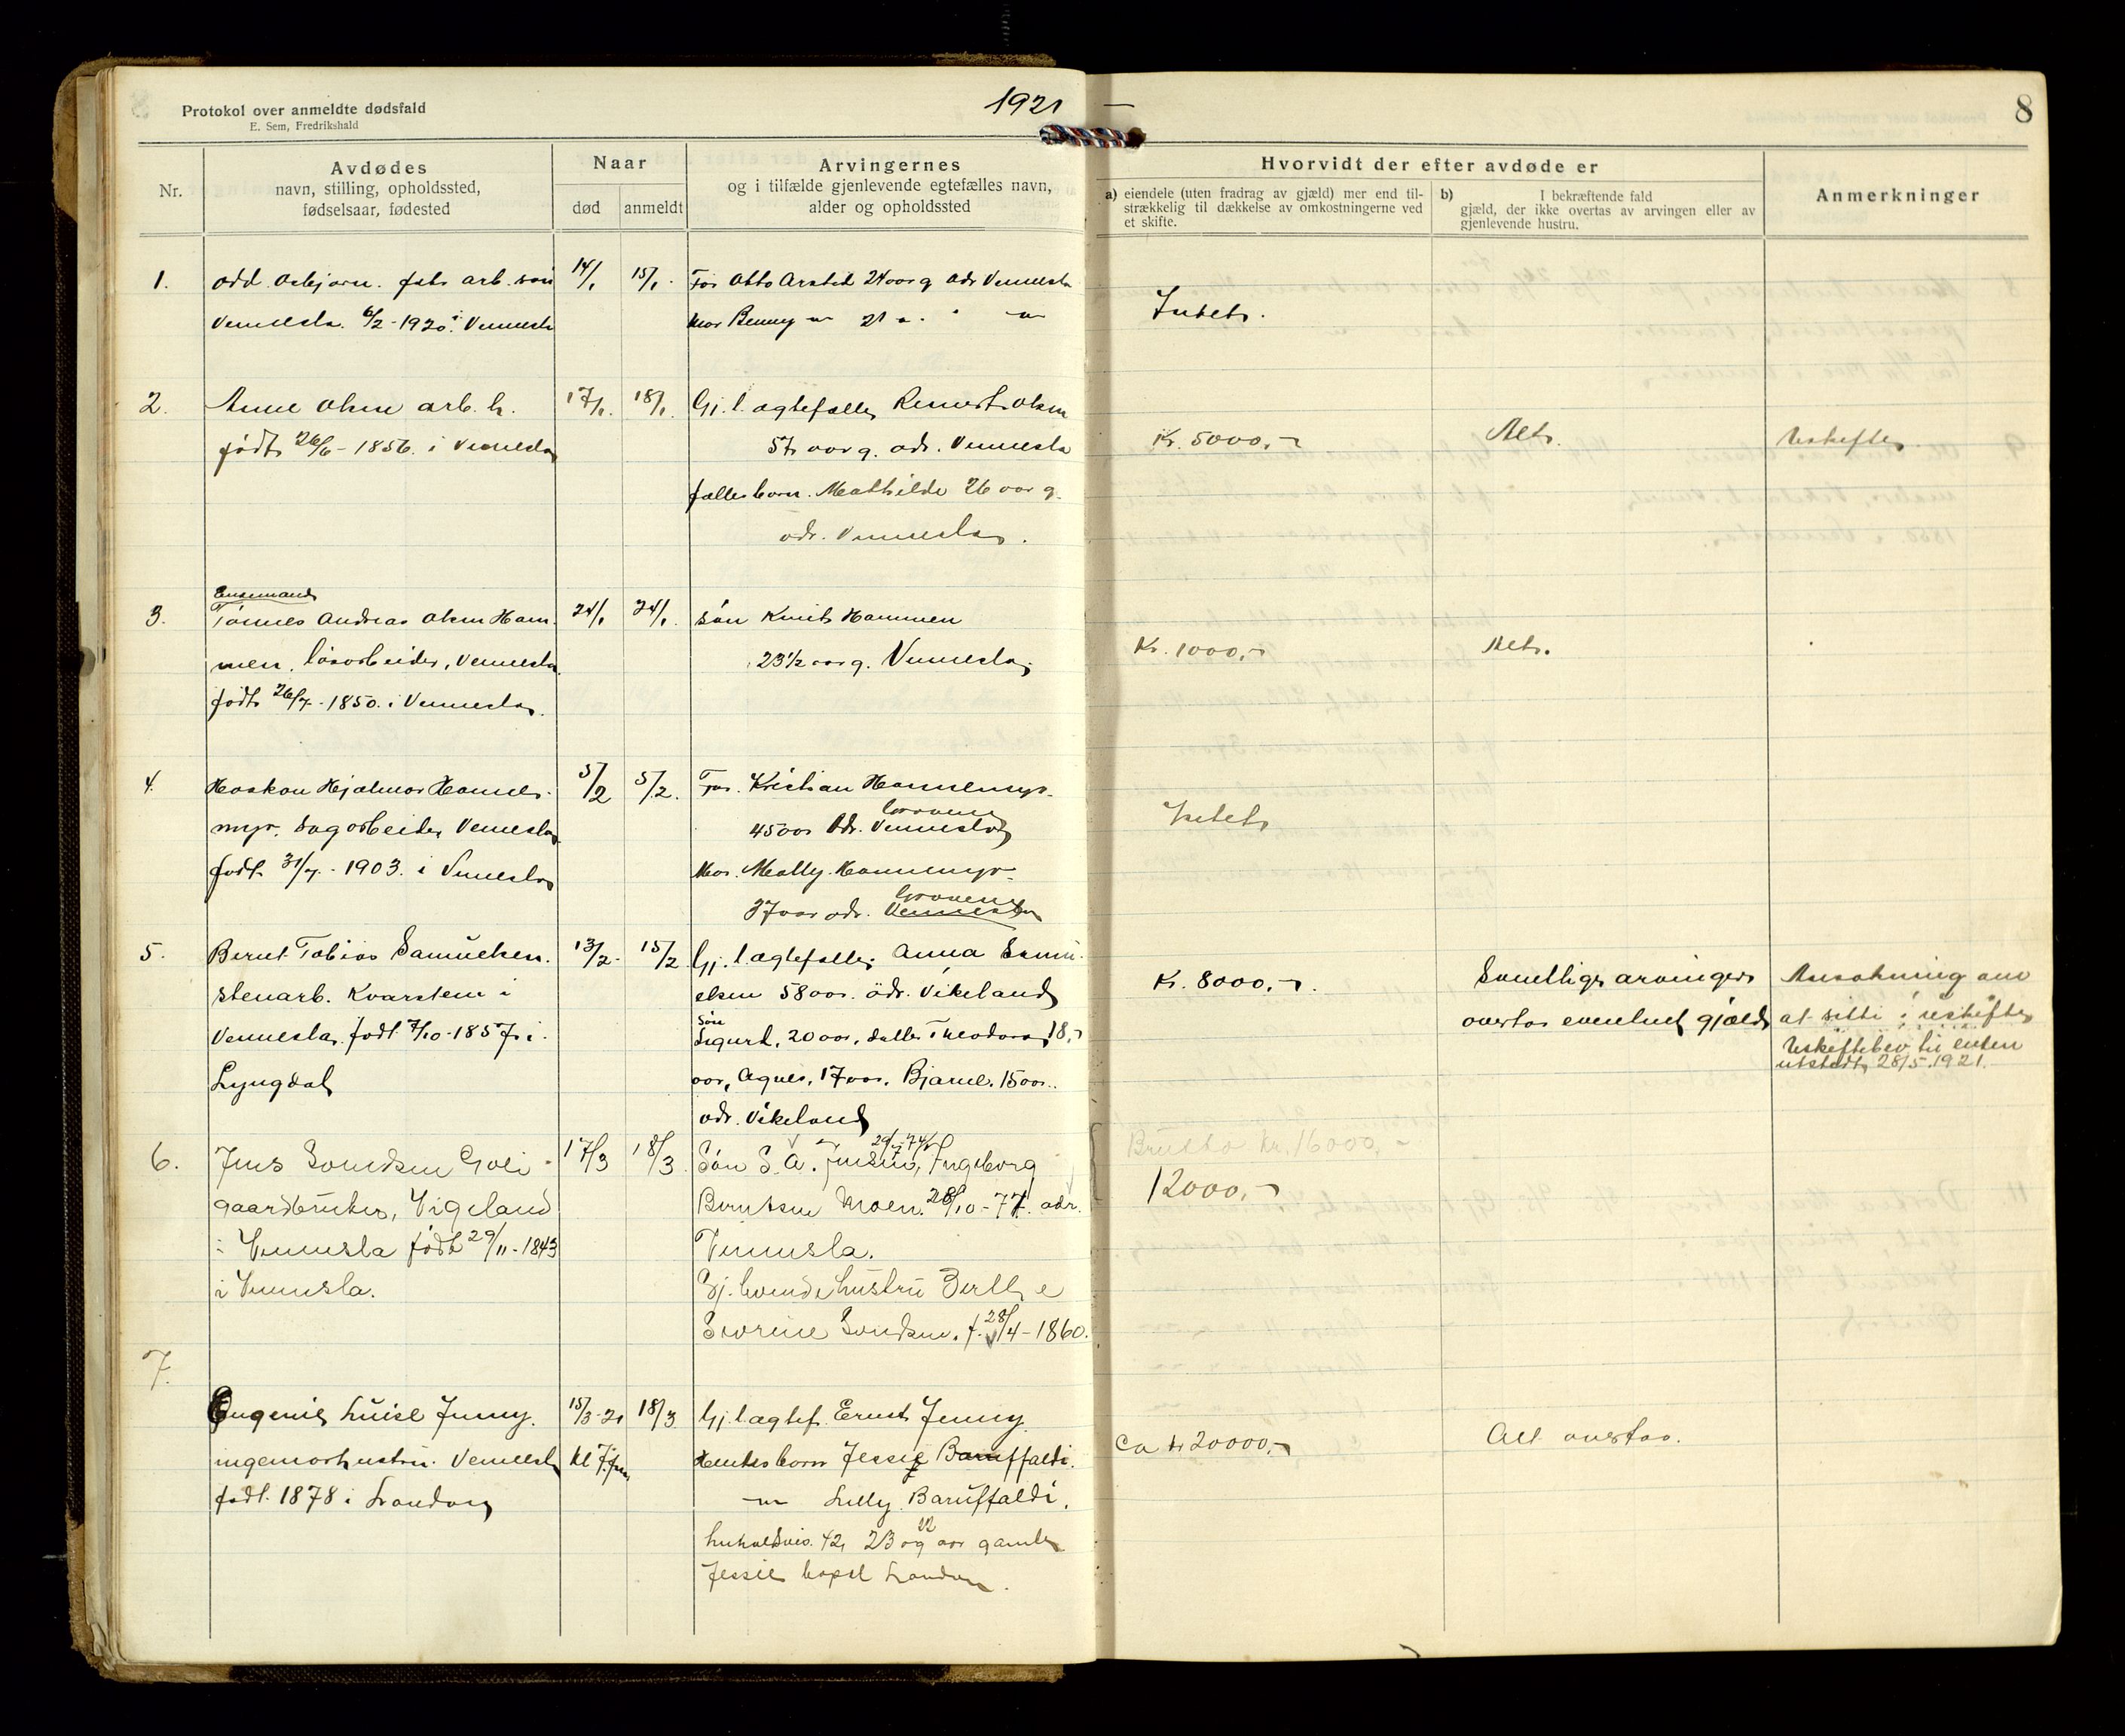 Protokol over anmeldte dødsfald
E. Sem, Fredrikshald
1921 —
8
Nr.
Avdødes
navn, stilling, opholdssted,
fødselsaar, fødested
Naar
død
anmeldt
Arvingernes
og i tilfælde gjenlevende egtefælles navn,
alder og opholdssted
Hvorvidt der efter avdøde er
a) eiendele (uten fradrag av gjæld) mer end til-
strækkelig til dækkelse av omkostningerne ved
et skifte.
b) I bekræftende fald
gjæld, der ikke overtas av arvingen eller av
gjenlevende hustru.
Anmerkninger
1.
Odd Asbjørn. fabr arb. søn
Vennesla. 6/2-1920 i Vennesla
14/1
15/1.
Far Otto 24 aar g adr Vennesla
Mor Benny 21
Intet.
2.
Anne Olsen arb. h.
født 26/6-1856. i Vennesla
17/1.
18/1.
Gj.l. ægtefælle Reinert Olsen
57 aar g. adr. Vennesla
fælles barn. Mathilde 26 aar g.
adr. Vennesla.
Kr. 5000,-
Alt.
Uskifte.
3.
Enkemand
Tønnes Andreas Olsen Ham-
men. løsarbeider, Vennesla
født 26/7-1850. i Vennesla.
24/1
24/1.
søn Knut Hammen
23 1/2 aar g. Vennesla
Kr. 1000,-
Alt.
4.
Haakon Hjalmar Hannes-
myr. Sagarbeider Vennesla
født 31/7-1903. i Vennesla
5/2
5/2.
Far. Kristian Hannesmyr-
Graven
45 aar Adr. Vennesla
Mor. Molly Hannesmyr-
Graven
37 aar adr. Vennesla
Intet
5.
Bernt Tobias Samuelsen.
Stenarb. Kvarstein i
Vennesla. født 7/10-1857 i
Lyngdal
13/2-
15/2
Gj.l. ægtefælle Anna Samu-
elsen 58 aar. adr. Vikeland
Søn
Sigurd, 20 aar, datter Theodora 18,-
aar, Agnes, 17 aar. Bjarne. 15 aar.
adr. Vikeland
Kr. 8000,-.
Samtlige arvinger
overtar eventuel gjæld
Ansøkning om
at sitte i uskifte
Uskiftebev til enken
utstedt 28/5.1921.
6.
Jens
gaardbruker, Vigeland
i Vennesla født 29/11-1843
i Vennesla.
17/3
18/3.
Søn S. A. Jensen, Ingeborg
Berntsen Moen. 28/10-77. adr.
Vennesla.
Gj. levende hustru Berthe
Severine f. 28/4-1860.
Brutto Kr. 16000,-
12000,-
7.
Eugenie Luise Jenny.
ingeniørhustru. Vennesla
født. 1878 i London
15/3-21
kl 7 fm.
18/3
Gj.l. ægtef. Ernst Jenny.
Jessie Baruffaldi.
Lilly Baruffaldi.
henholdsvis. 42, 23 og 22 aar gamle
Jessie bopæl London.
Ca kr 20000,-
Alt overtas.